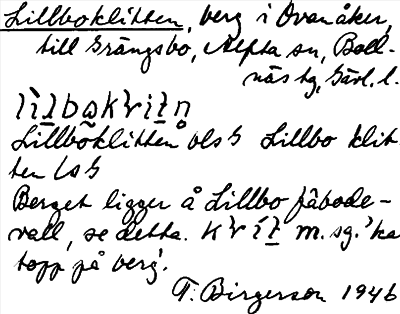 Lillboklitten, berg i Ovanåker,
till Grängsbo, Alfta sn, Boll-
näs tg, Gävl. l.
Lillboklitten ols G Lillbo klit-
ten las G
Berget ligger å Lillbo fäbode-
vall, se detta. m. sg. 'ka
topp på berg'.
T. Birgerson 1946